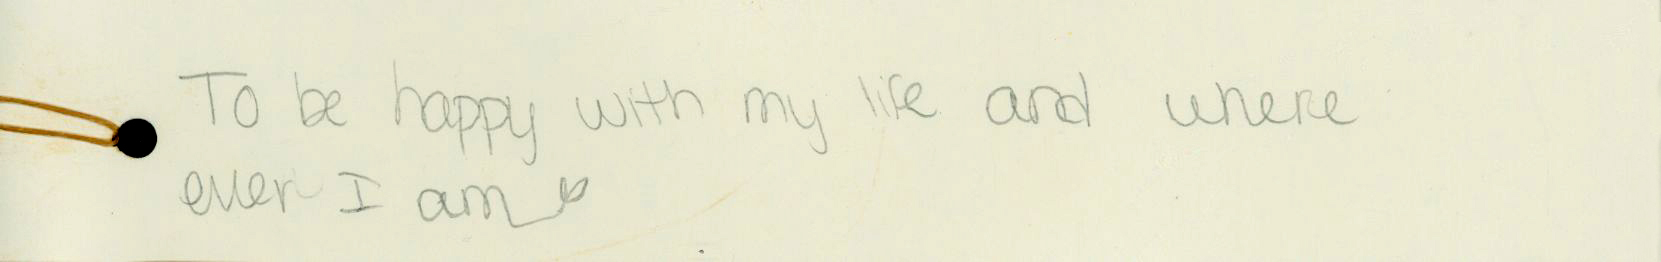 To be happy with my life and where
ever I am